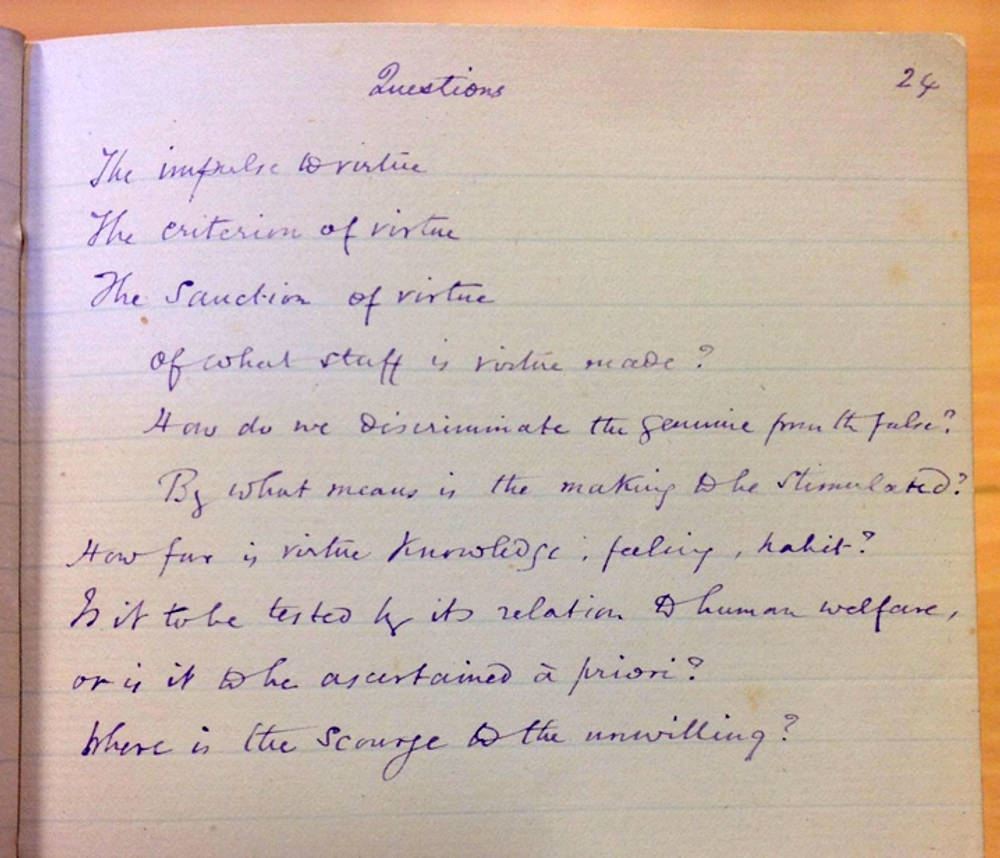 Questions 24
The impulse to virtue
The criterion of virtue
The Sanction of virtue
Of what stuff is virtue made?
How do we discriminate the genuine from th false?
By what means is the making to be stimulated?
How far is virtue knowledge, feeling, habit?
Is it to be tested by its relation to human welfare,
or is it to be ascertained à priori?
Where is the scourge to the unwilling?